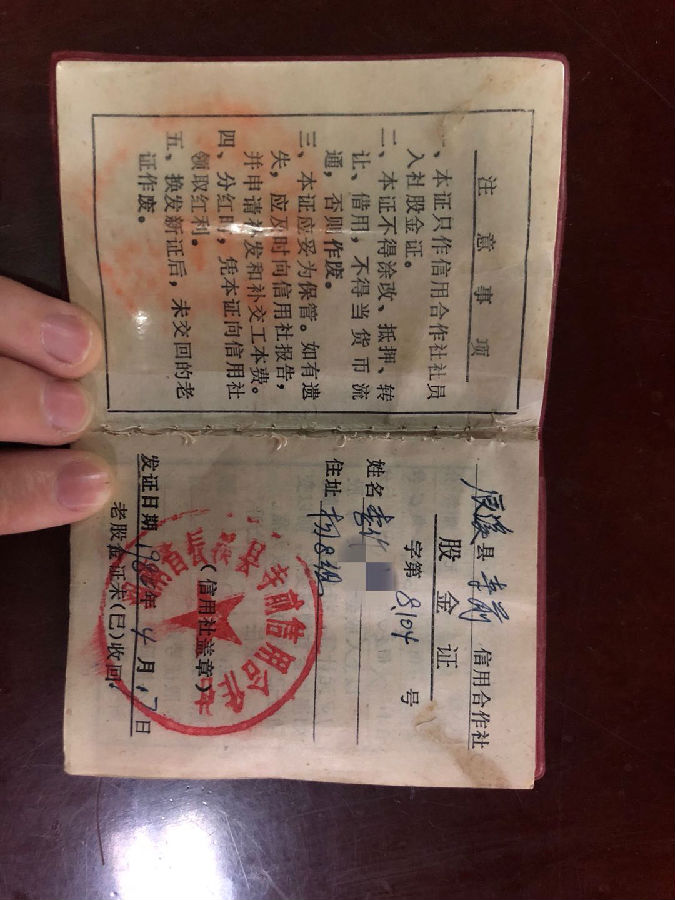 注意事项
一、本证只作信用合作社社员
入社股金证。
二、本证不得涂改、抵押、转
让、借用，不得当货币流
通，否则作废。
三、本证应妥为保管。如有遗
失，应及时向信用社报告，
并申请补发和补交工本费。
四、分红时，凭本证向信用社
领取红利。
五、换发新证后，未交回的老
证作废。
辰溪县寺前信用合作社
股金证
字第8104号
姓名
住址
(信用社盖章)
发证日期 年4月17日
老股金证未(已)收回。
辰溪县寺前信用合作社